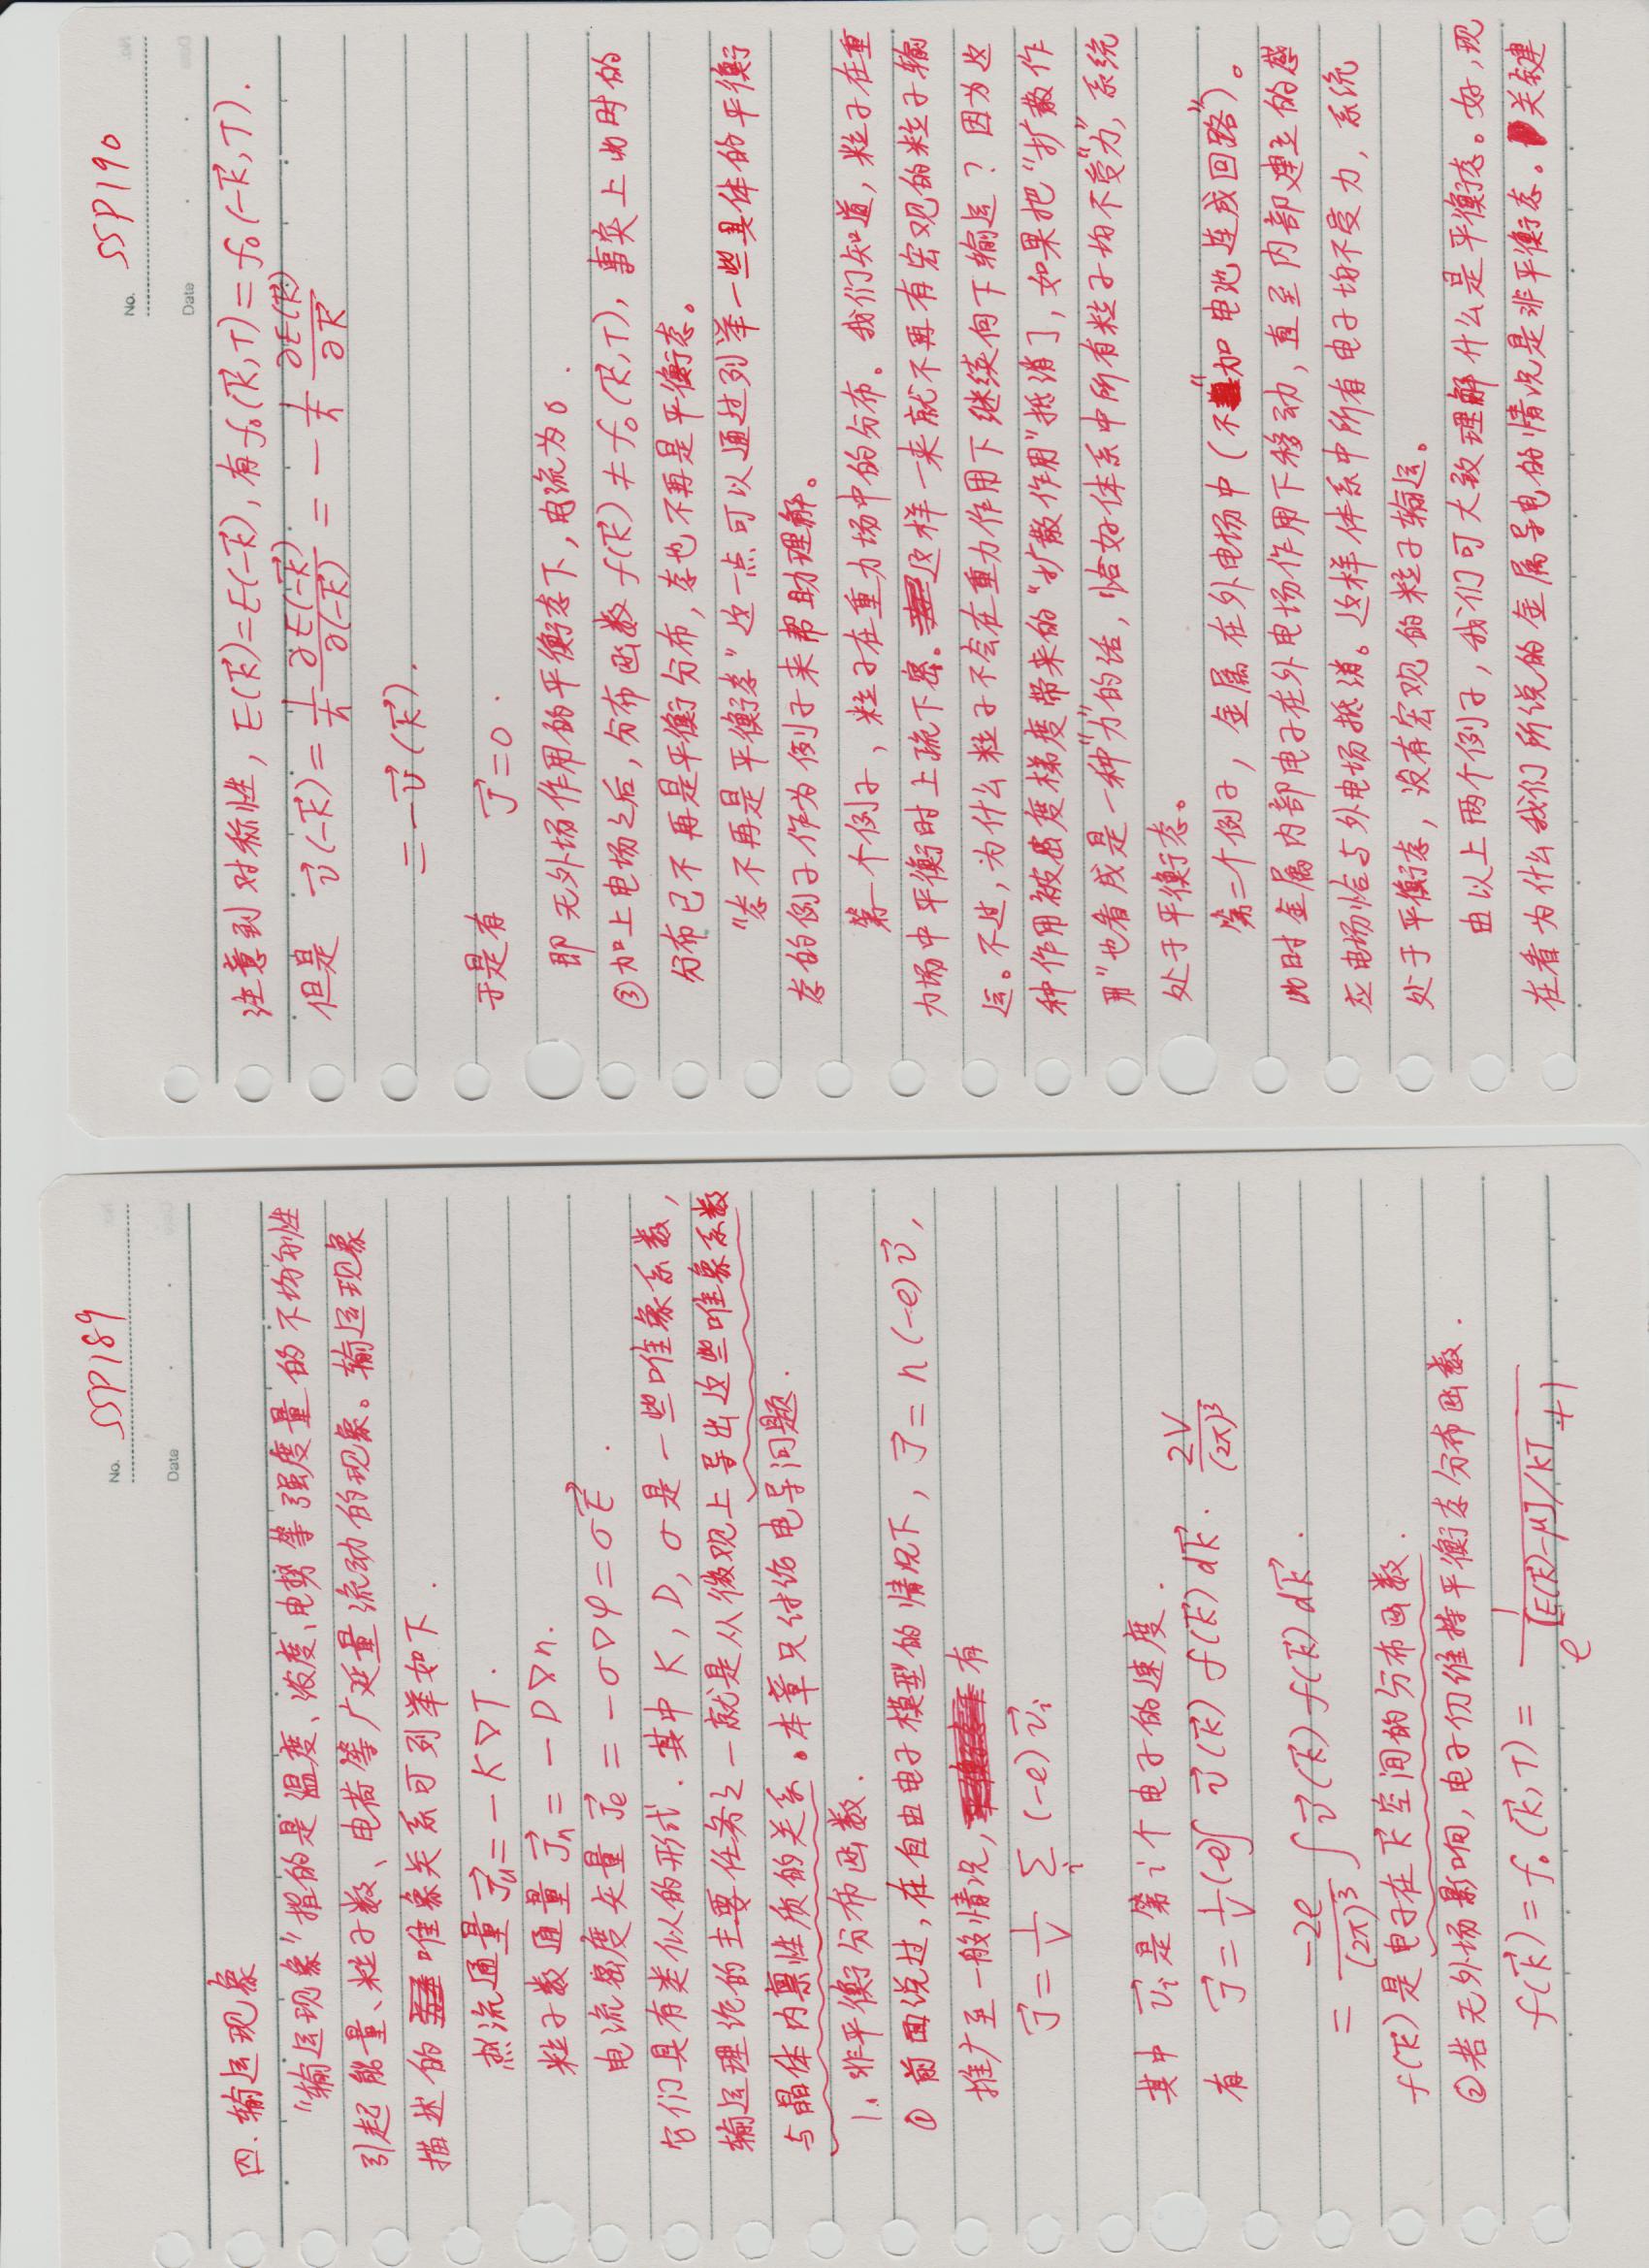 No. SSP189
Date
四. 输运现象
“输运现象”指的是温度、浓度、电势等强度量的不均匀性
引起能量、粒子数、电荷等广延量流动的现象。输运现象
描述的唯象关系可列举如下.
热流通量 J⃗u = -K∇T.
粒子数通量 J⃗n = -D∇n.
电流密度矢量 J⃗e = -σ∇φ = σE⃗.
它们具有类似的形式. 其中 K, D, σ 是一些唯象系数,
输运理论的主要任务之一就是从微观上导出这些唯象系数
与晶体内禀性质的关系。本章只讨论电导问题.
1. 非平衡分布函数.
① 前面说过, 在自由电子模型的情况下, J⃗ = n(-e)v⃗,
推广至一般情况, 有
J⃗ = 1/V Σ_i (-e) v⃗i
其中 v⃗i 是第 i 个电子的速度.
有 J⃗ = 1/V (-e)∫ v⃗(k⃗) f(k⃗) dk⃗ · 2V/(2π)³
= -2e/(2π)³ ∫ v⃗(k⃗) f(k⃗) dk⃗.
f(k⃗) 是电子在 k⃗ 空间的分布函数.
② 若无外场影响, 电子仍维持平衡态分布函数.
f(k⃗) = f₀(k⃗, T) = 1/(e^{[E(k⃗)-μ]/kT} + 1)
No. SSP190
Date
注意到对称性, E(k⃗)=E(-k⃗), 有 f₀(k⃗,T) = f₀(-k⃗,T).
但是 v⃗(-k⃗) = 1/ħ ∂E(-k⃗)/∂(-k⃗) = - 1/ħ ∂E(k⃗)/∂k⃗
= -v⃗(k⃗).
于是有 J⃗=0.
即无外场作用的平衡态下, 电流为0.
③加上电场之后, 分布函数 f(k⃗) ≠ f₀(k⃗,T), 事实上此时的
分布已不再是平衡分布, 态也不再是平衡态。
“态不再是平衡态”这一点可以通过列举一些具体的平衡
态的例子作为例子来帮助理解。
第一个例子, 粒子在重力场中的分布。我们知道, 粒子在重
力场中平衡时上疏下密。这样一来就不再有宏观的粒子输
运。不过, 为什么粒子不会在重力作用下继续向下输运? 因为这
种作用被密度梯度带来的“扩散作用”抵消了, 如果把“扩散作
用”也看成是一种“力”的话, 恰好体系中所有粒子均不受“力”, 系统
处于平衡态。
第二个例子, 金属在外电场中(不“加电池连成回路”)。
此时金属内部电子在外电场作用下移动, 直至内部建立的感
应电场恰与外电场抵消。这样体系中所有电子均不受力, 系统
处于平衡态, 没有宏观的粒子输运。
由以上两个例子, 我们可大致理解什么是平衡态。好, 现
在看为什么我们所说的金属导电的情况是非平衡态。关键